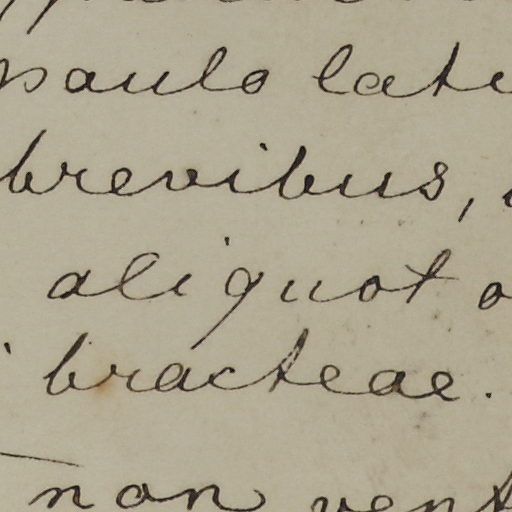 paulo late
brevibus,
aliquot o
bracteae.
non vent